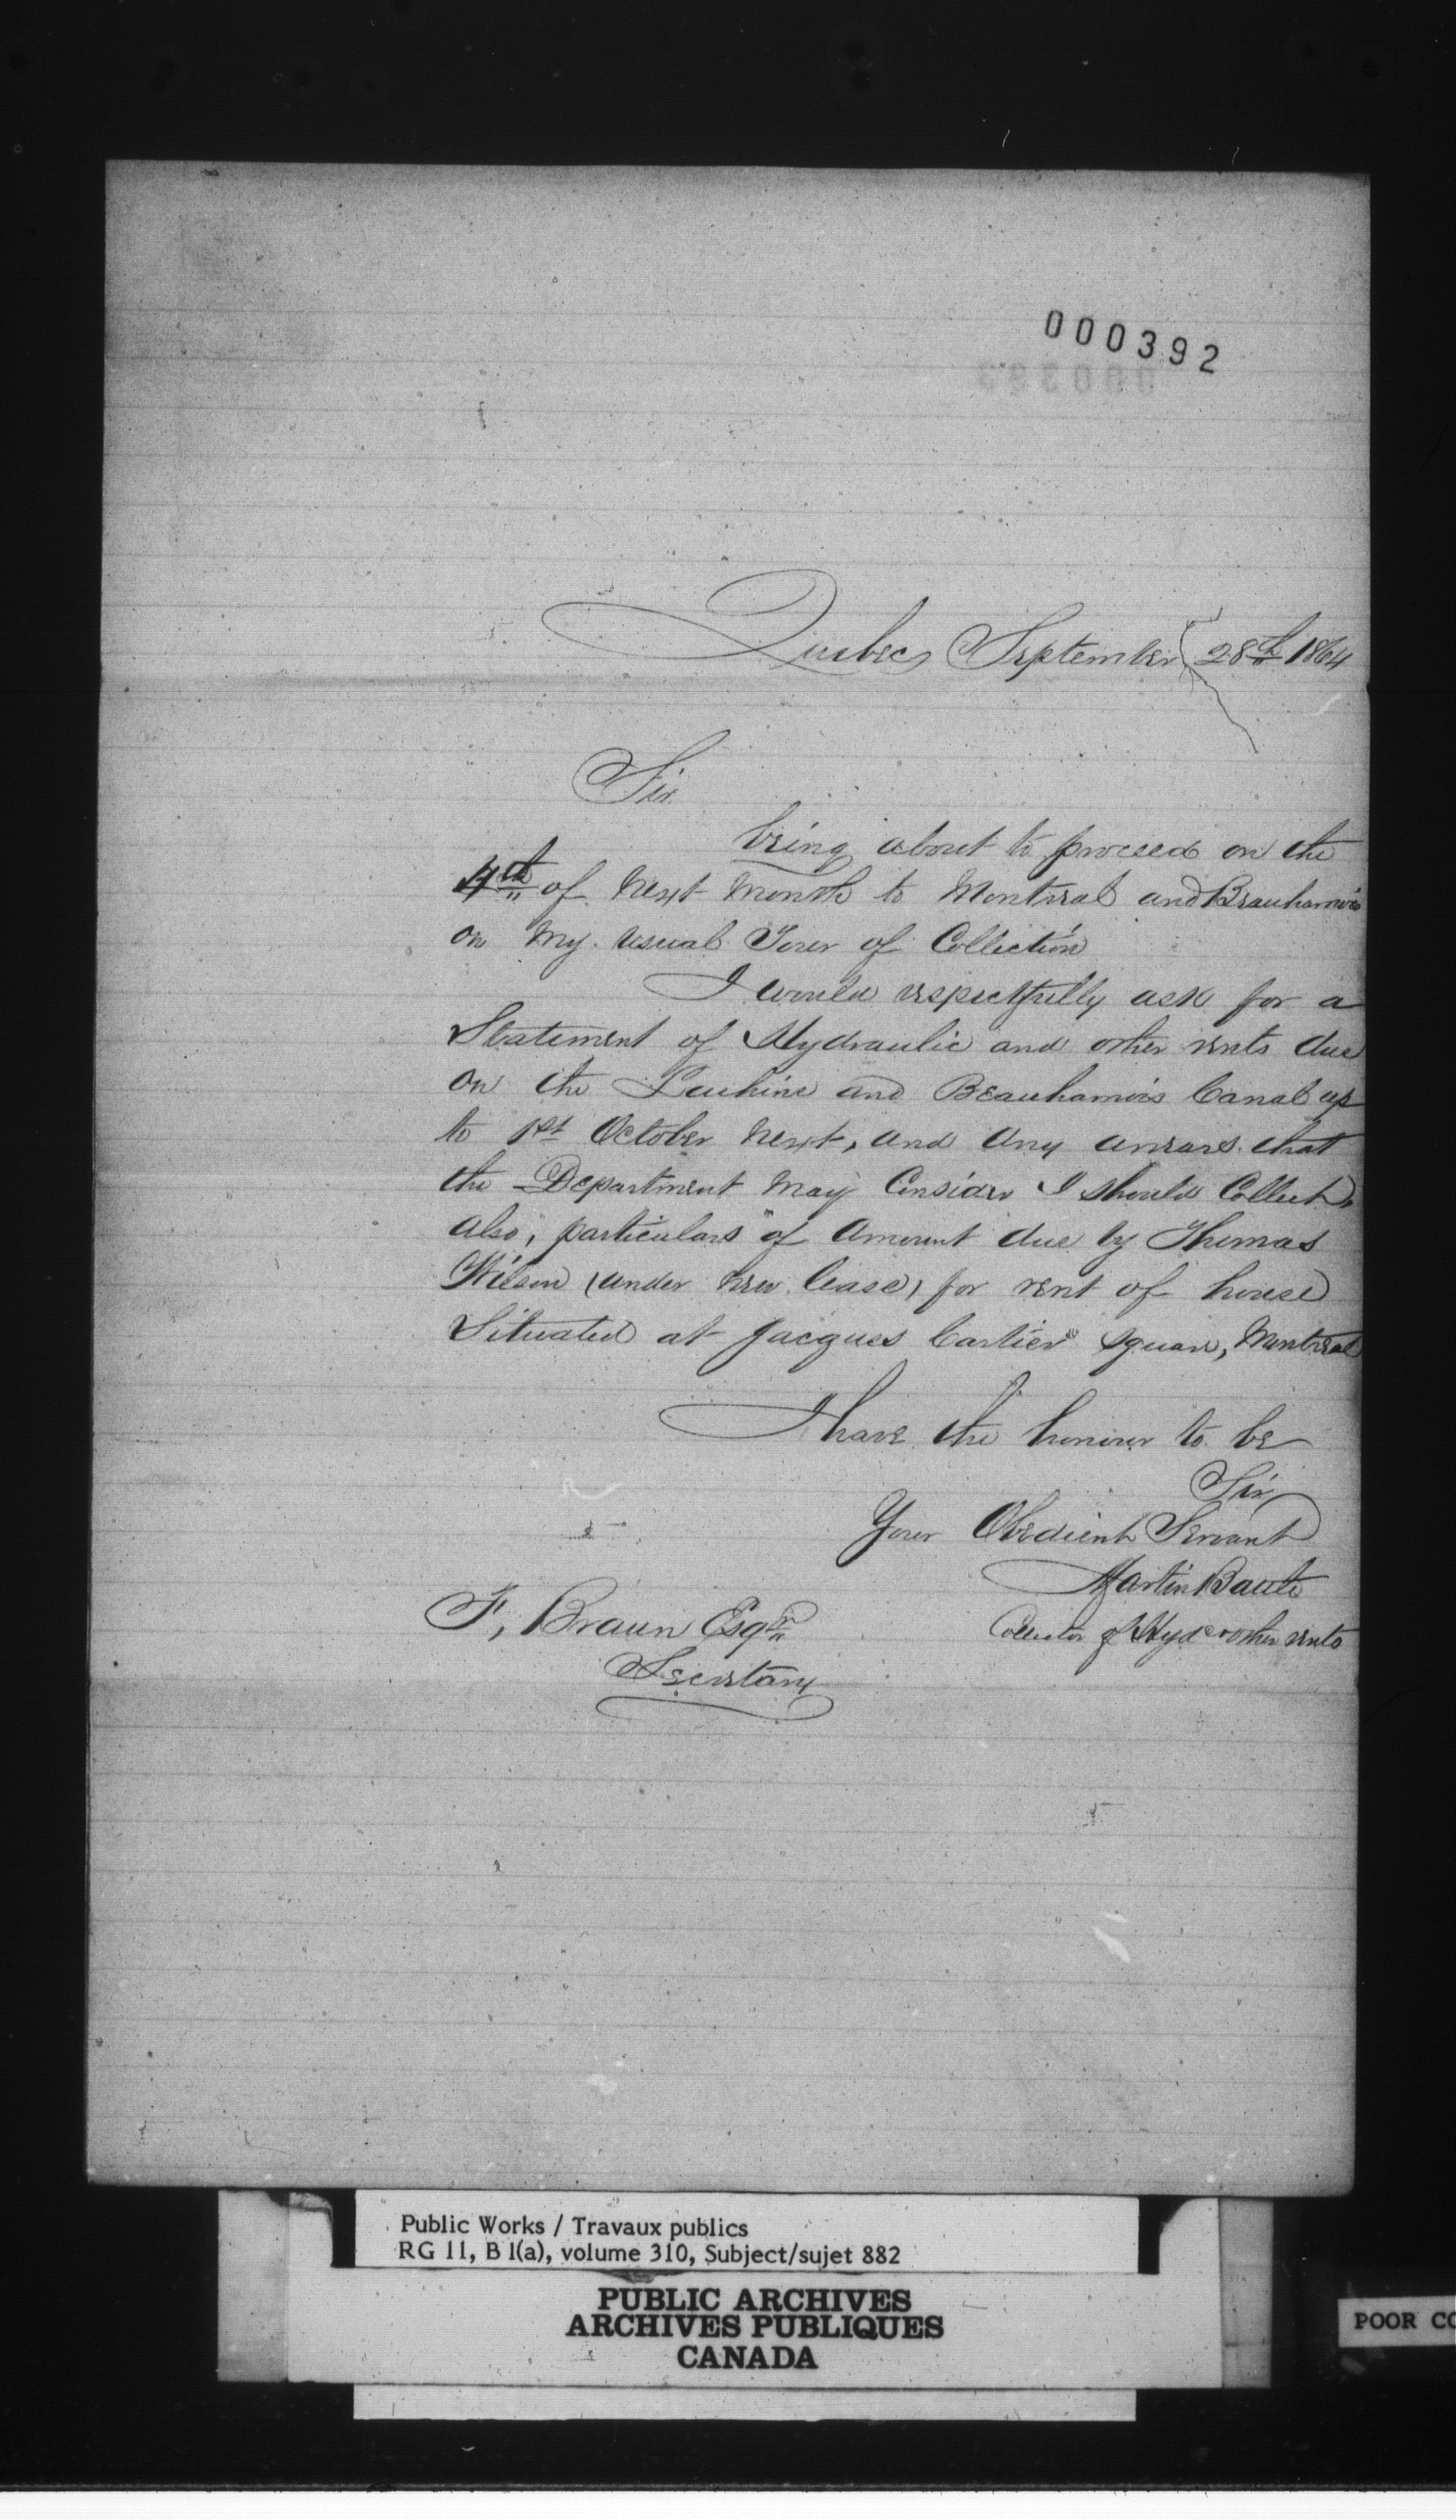 000392
Quebec September 28th 1864
Sir
being about to proceed on the
4th of next month to Montreal and Beauharnois
on my usual Tour of Collection
I would respectfully ask for a
Statement of Hydraulic and other rents due
on the Lachine and Beauharnois Canal up
to 1st October next, and any arrears that
the Department may Consider I should Collect,
also, particulars of amount due by Thomas
Wilson (under new lease) for rent of house
Situated at Jacques Cartier Square, Montreal
I have the honour to be
Sir
Your Obedient Servant
Martin
Collector of Hyd & other rents
F, Braun Esqr
Secretary
Public Works / Travaux publics
RG 11, B 1(a), volume 310, Subject/sujet 882
PUBLIC ARCHIVES
ARCHIVES PUBLIQUES
CANADA
POOR CO